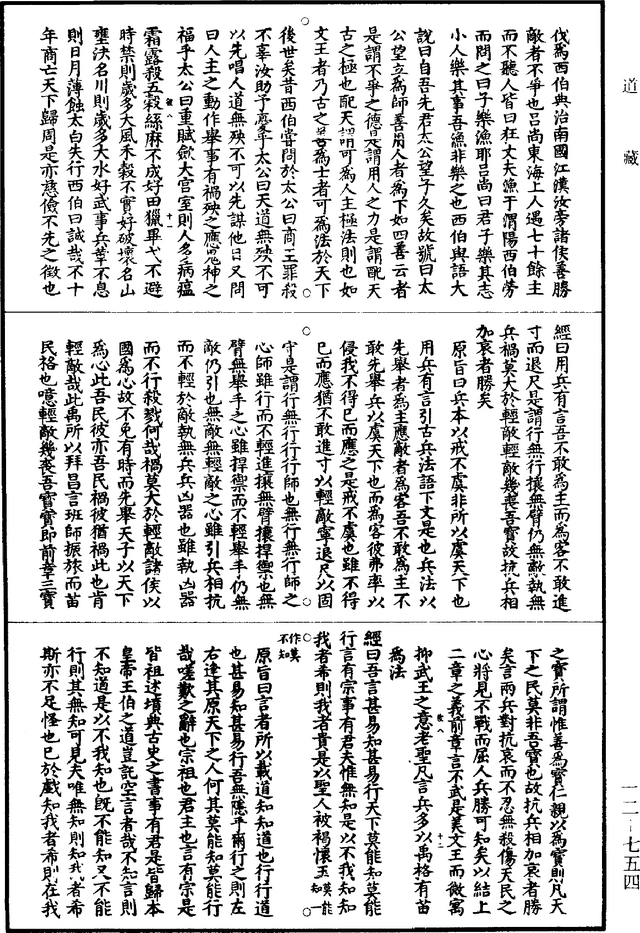 道藏
伐爲西伯典治南國江漢汝旁諸侯善勝
敵者不爭也呂尚東海上人遇七十餘主
而不聽人皆曰狂丈夫漁于渭陽西伯勞
而問之曰子樂漁耶呂尚曰君子樂其志
小人樂其事吾漁非樂之也西伯與語大
說曰自吾先君太公望子久矣故號曰太
公望立爲師善用人者爲下如四善云者
是謂不爭之德是謂用人之力是謂配天
古之極也配天謂可爲人主極法則也如
文王者乃古之善爲士者可爲法於天下
後世矣昔西伯嘗問於太公曰商王罪殺
不辜汝助予憂乎太公曰天道無殃不可
以先唱人道無殃不可以先謀他日又問
曰人主之動作舉事有禍殃之應鬼神之
福乎太公曰重賦斂大宮室則人多病瘟
十一
霜露殺五穀絲麻不成好田獵畢弋不避
時禁則歲多大風禾穀不實好破壞名山
壅決名川則歲多大水好武事兵革不息
則日月薄蝕太白失行西伯曰誠哉不十
年商亡天下歸周是亦慈儉不先之徵也
經曰用兵有言吾不敢爲主而爲客不敢進
寸而退尺是謂行無行攘無臂仍無敵執無
兵禍莫大於輕敵輕敵幾喪吾寶故抗兵相
加哀者勝矣
原旨曰兵本以戒不虞非所以虞天下也
用兵有言引古兵法語下文是也兵法以
先舉者爲主應敵者爲客吾不敢爲主不
敢先舉兵以虞天下也而爲客彼弗率以
侵我不得已而應之是戒不虞也雖不得
已而應猶不敢進寸以輕敵寧退尺以固
守是謂行無行行行師也無行無行師之
心師雖行而不輕進攘無臂攘捍禦也無
臂無舉手之心雖捍禦而不輕舉手仍無
敵仍引也無敵無輕敵之心雖引兵相抗
而不輕於敵執無兵兵凶器也雖執凶器
而不行殺戮何哉禍莫大於輕敵諸侯以
國爲心故不免有時而先舉天子以天下
爲心此吾民彼亦吾民禍彼猶禍此也肯
輕敵哉此禹所以拜昌言班師振旅而苗
民格也噫輕敵幾喪吾寶寶即前章三寶
之寶所謂惟善爲寶仁親以爲寶則凡天
下之民莫非吾寶也故抗兵相加哀者勝
矣言兩兵對抗哀而不忍無殺傷天民之
心將見不戰而屈人兵勝可知矣以結上
二章之義前章言不武是美文王而微寓
十二
抑武王之意老聖凡言兵多以禹格有苗
爲法
經曰吾言甚易知甚易行天下莫能知莫能
行言有宗事有君夫惟無知是以不我知知
我者希則我者貴是以聖人被褐懷玉知莫一能
作莫不知
原旨曰言者所以載道知知道也行行道
也甚易知甚易行吾無隱乎爾行之則左
右逢其原天下之人何其莫能知莫能行
哉嗟歎之辭也宗祖也君主也言有宗是
皆祖述墳典古史之書事有君是皆歸本
皇帝王伯之道豈託空言者哉不知言則
不知道是以不我知也既不能知又不能
行則其無知可見夫唯無知則知我者希
斯亦不足怪也已於戲知我者希則在我
一二—七五四